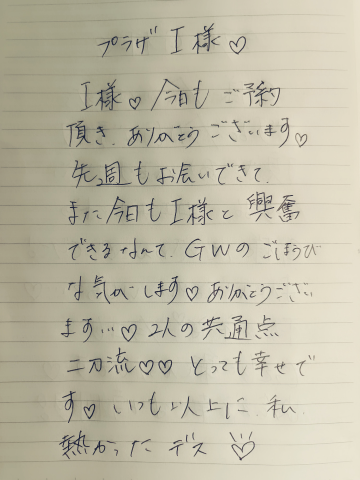 プラザ I様♡
I様♡今日もご予約
頂き、ありがとうございます♡
先週もお会いできて、
また今日もI様と興奮
できるなんて、GWのごほうび
な気がします♡ありがとうござい
ます…♡2人の共通点
二刀流♡♡とっても幸せで
す♡いつも以上に、私、
熱かったデス♡